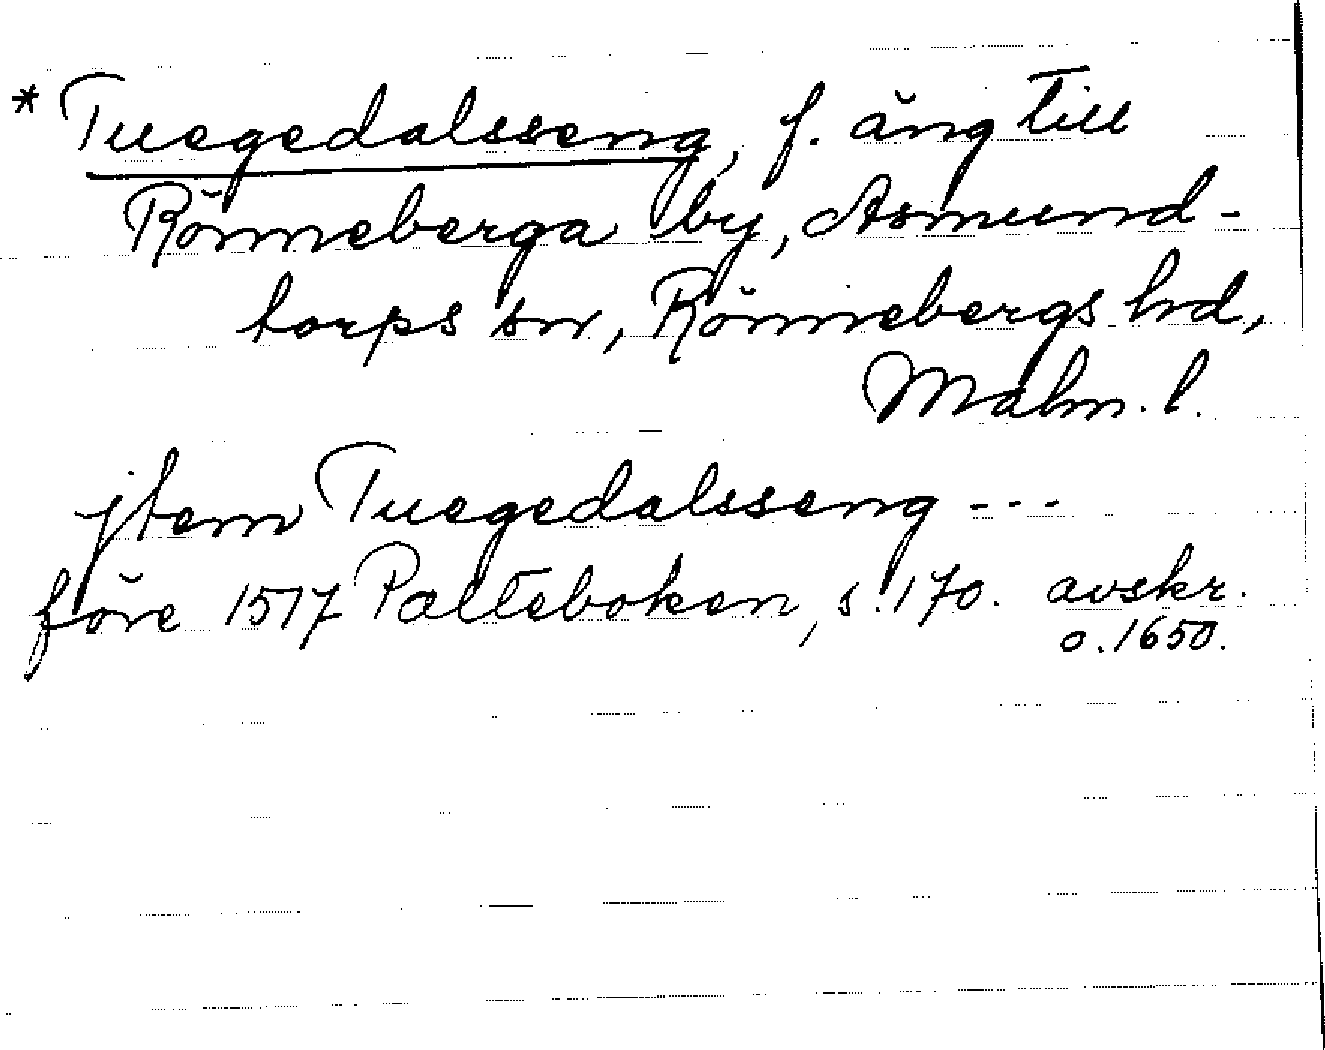 * Tuegedalsseng, f. äng till
Rönneberga by, Asmund-
torps sn, Rönnebergs hd,
Malm. l.
jtem Tuegedalsseng ---
före 1517 Palteboken, s. 170. avskr.
o. 1650.